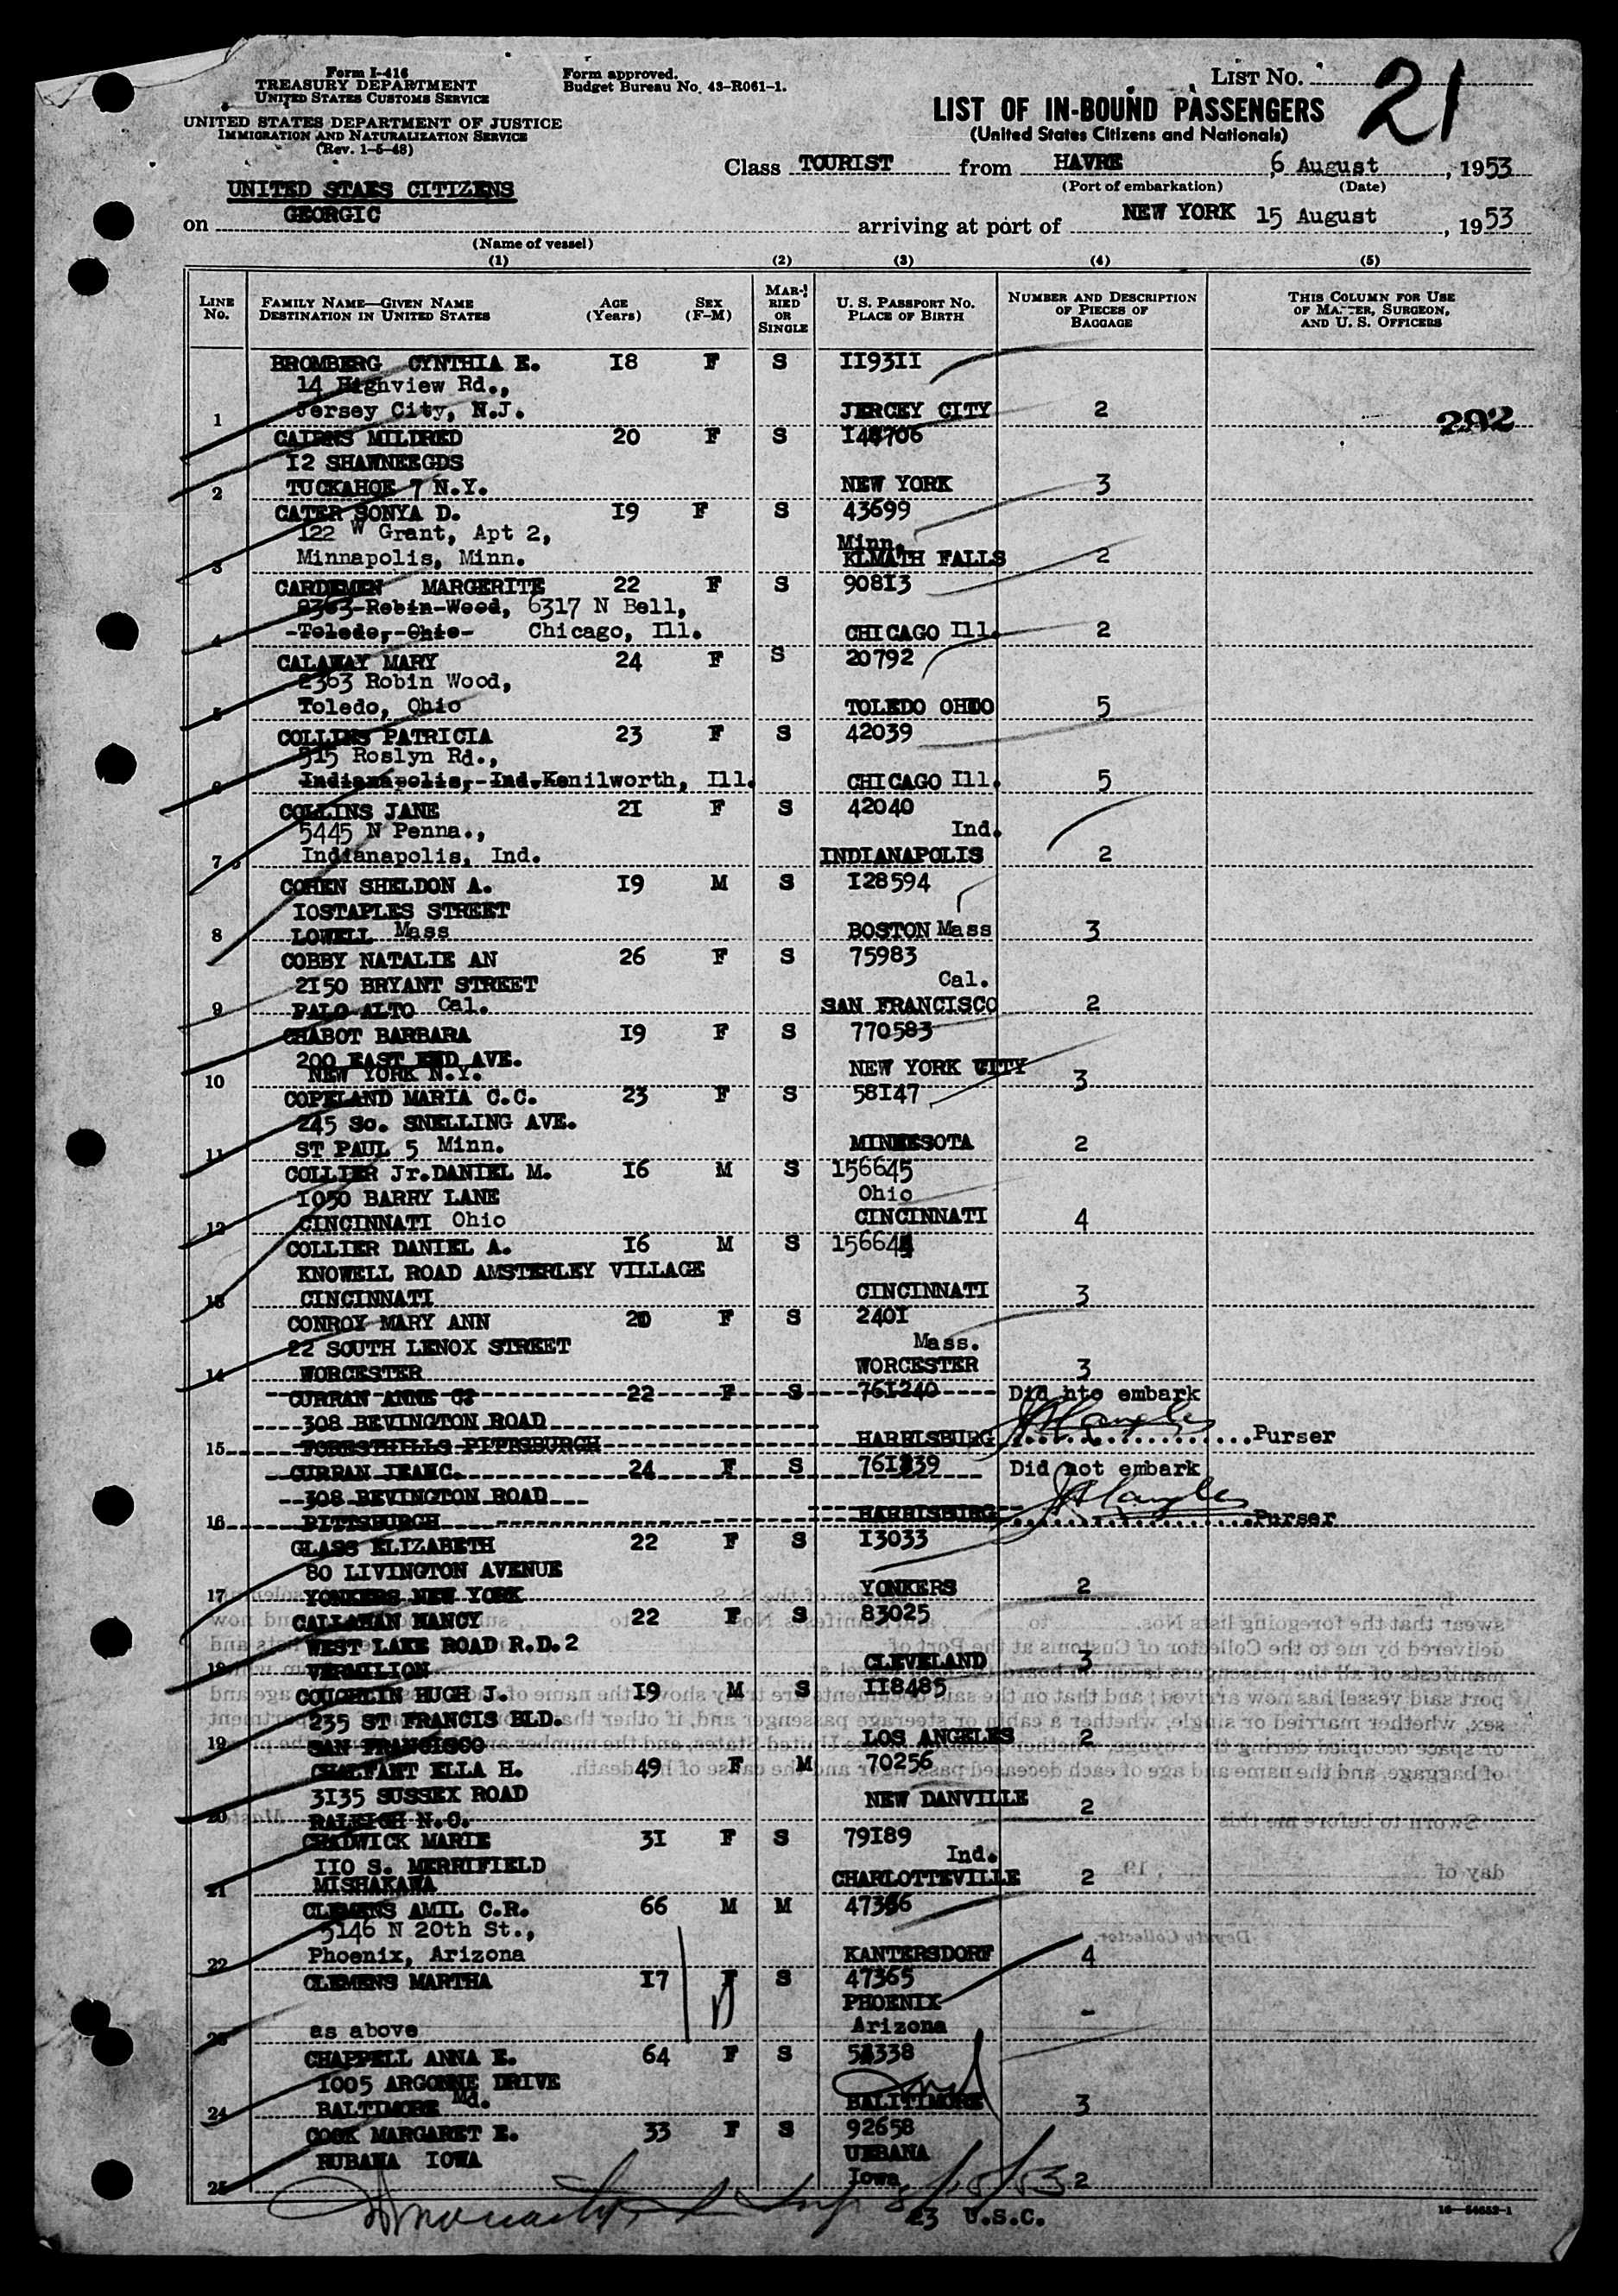 Form I-416
TREASURY DEPARTMENT
UNITED STATES CUSTOMS SERVICE
UNITED STATES DEPARTMENT OF JUSTICE
IMMIGRATION AND NATURALIZATION SERVICE
(Rev. 1-5-48)
Form approved.
Budget Bureau No. 43-R061-1.
LIST NO. 21
LIST OF IN-BOUND PASSENGERS
(United States Citizens and Nationals)
Class TOURIST from HAVRE 6 August, 1953
(Port of embarkation) (Date)
UNITED STAES CITIZENS
on GEORGIC arriving at port of NEW YORK 15 August, 1953
(Name of vessel)
(1) (2) (3) (4) (5)
LINE NO. FAMILY NAME—GIVEN NAME DESTINATION IN UNITED STATES AGE (Years) SEX (F-M) MARRIED OR SINGLE U. S. PASSPORT NO. PLACE OF BIRTH NUMBER AND DESCRIPTION OF PIECES OF BAGGAGE THIS COLUMN FOR USE OF MASTER, SURGEON, AND U. S. OFFICERS
BROMBERG CYNTHIA E. 18 F S 119311
14 Highview Rd.,
1 Jersey City, N.J. JERCEY CITY 2 292
CAIRNS MILDRED 20 F S 148706
12 SHAWNEEGDS
2 TUCKAHOE 7 N.Y. NEW YORK 3
CATER SONYA D. 19 F S 43699
122 W Grant, Apt 2, Minn.
3 Minnapolis, Minn. KLMATH FALLS 2
CARDEMEN MARGERITE 22 F S 90813
2363 Robin Wood, 6317 N Bell,
4 Toledo, Ohio Chicago, Ill. CHICAGO Ill. 2
CALAWAY MARY 24 F S 20792
2363 Robin Wood,
5 Toledo, Ohio TOLEDO OHIO 5
COLLINS PATRICIA 23 F S 42039
315 Roslyn Rd.,
6 Indianapolis, Ind. Kenilworth, Ill. CHICAGO Ill. 5
COLLINS JANE 21 F S 42040
5445 N Penna., Ind.
7 Indianapolis, Ind. INDIANAPOLIS 2
COHEN SHELDON A. 19 M S 128594
10STAPLES STREET
8 LOWELL Mass BOSTON Mass 3
COBBY NATALIE AN 26 F S 75983
2150 BRYANT STREET Cal.
9 PALO ALTO Cal. SAN FRANCISCO 2
CHABOT BARBARA 19 F S 770583
200 EAST END AVE. NEW YORK CITY
10 NEW YORK N.Y. 3
COPELAND MARIA C.C. 23 F S 58147
245 So. SNELLING AVE.
11 ST PAUL 5 Minn. MINNESOTA 2
COLLIER Jr.DANIEL M. 16 M S 156645
1050 BARRY LANE Ohio
12 CINCINNATI Ohio CINCINNATI 4
COLLIER DANIEL A. 16 M S 156644
KNOWELL ROAD AMSTERLEY VILLAGE
13 CINCINNATI CINCINNATI 3
CONROY MARY ANN 20 F S 2401
22 SOUTH LENOX STREET Mass.
14 WORCESTER WORCESTER 3
CURRAN ANNE C? 22 F S 761240 Did nto embark
308 BEVINGTON ROAD
15 FORESTHILLS PITTSBURGH HARRISBURG Purser
CURRAN JEANC. 24 F S 761239 Did not embark
308 BEVINGTON ROAD
16 PITTSBURGH HARRISBURG Purser
GLASS ELIZABETH 22 F S 13033
80 LIVINGTON AVENUE
17 YONKERS NEW YORK YONKERS 2
CALLAHAN NANCY 22 F S 83025
WEST LAKE ROAD R.D.2
18 VERMILION CLEVELAND 3
COUGHLIN HUGH J. 19 M S 118485
235 ST FRANCIS BLD.
19 SAN FRANCISCO LOS ANGELES 2
CHALFANT ELLA H. 49 F M 70256
3135 SUSSEX ROAD
20 RALEIGH N.C. NEW DANVILLE 2
CHADWICK MARIE 31 F S 79189
110 S. MERRIFIELD Ind.
21 MISHAKAWA CHARLOTTEVILLE 2
CLEMENS AMIL C.R. 66 M M 47366
5146 N 20th St.,
22 Phoenix, Arizona KANTERSDORF 4
CLEMENS MARTHA 17 F S 47365
PHOENIX
23 as above Arizona -
CHAPPELL ANNA E. 64 F S 338
1005 ARGONNE DRIVE
24 BALTIMORE Md. BALITIMORE 3
COOK MARGARET E. 33 F S 92658
RUBANA IOWA URBANA
25 Iowa 2
8/15/53
23 U.S.C.
16—54652-1